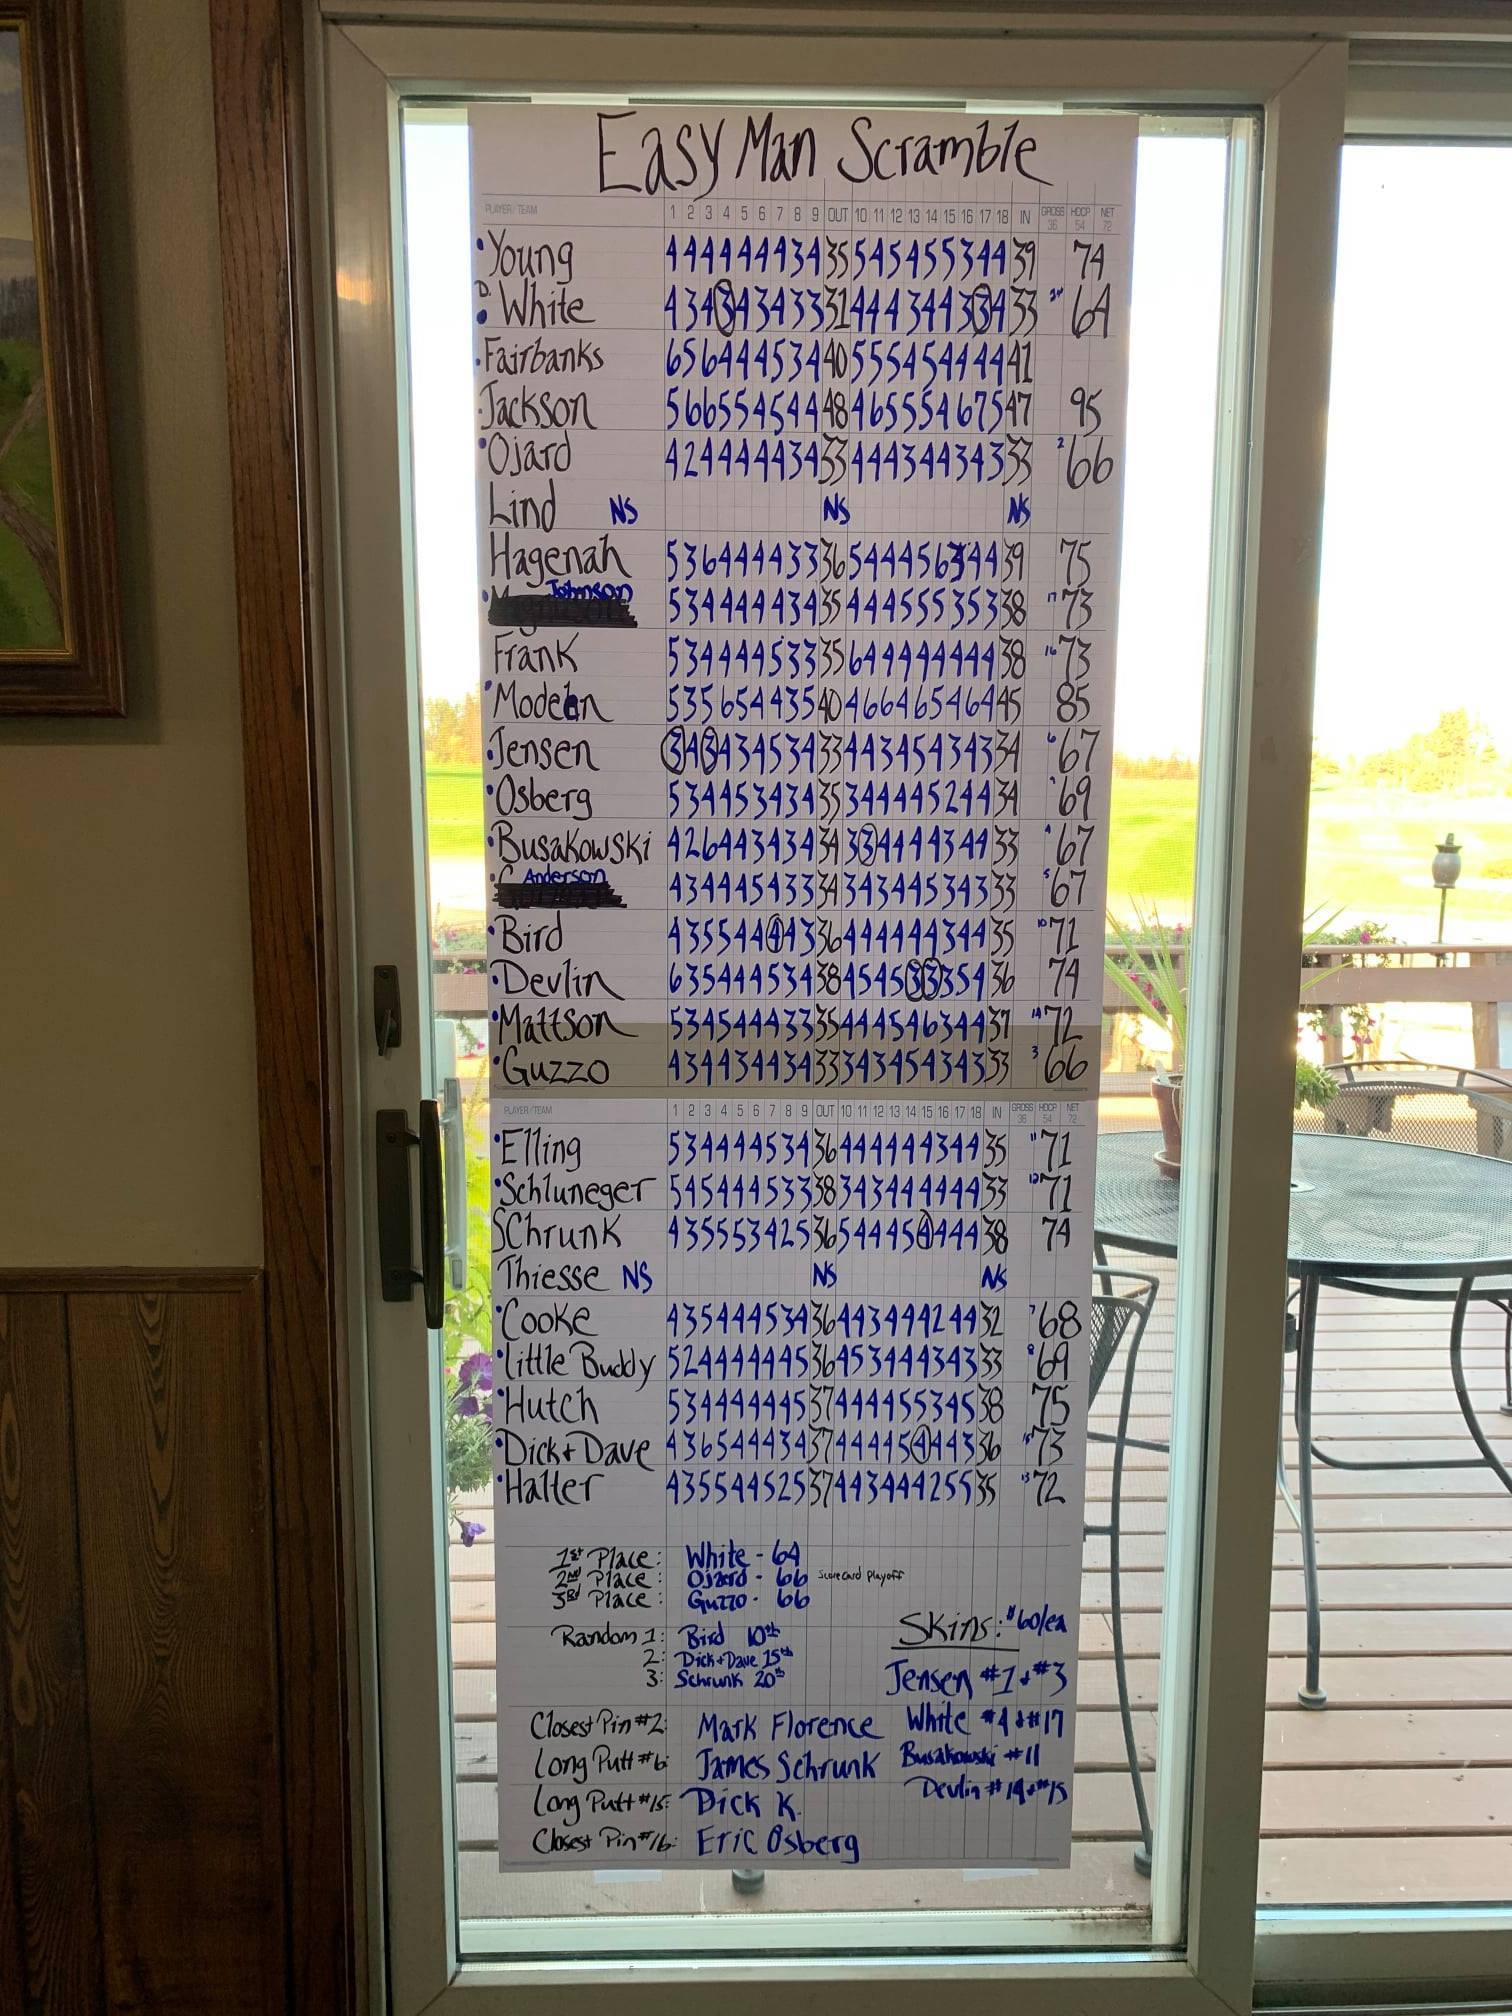 Easy Man Scramble
PLAYER/TEAM 1 2 3 4 5 6 7 8 9 OUT 10 11 12 13 14 15 16 17 18 IN GROSS HDCP NET
36 54 72
Young 4 4 4 4 4 4 4 3 4 35 5 4 5 4 5 5 3 4 4 39 74
D. White 4 3 4 3 4 3 4 3 3 31 4 4 4 3 4 4 3 3 4 33 64
Fairbanks 6 5 6 4 4 4 5 3 4 40 5 5 5 4 5 4 4 4 4 41
Jackson 5 6 6 5 5 4 5 4 4 48 4 6 5 5 5 4 6 7 5 47 95
Ojard 4 2 4 4 4 4 4 3 4 33 4 4 4 3 4 4 3 4 3 33 2 66
Lind NS NS NS
Hagenah 5 3 6 4 4 4 4 3 3 36 5 4 4 4 5 6 3 4 4 39 75
Johnson 5 3 4 4 4 4 4 3 4 35 4 4 4 5 5 5 3 5 3 38 17 73
Frank 5 3 4 4 4 4 5 3 3 35 6 4 4 4 4 4 4 4 4 38 16 73
Modeen 5 3 5 6 5 4 4 3 5 40 4 6 6 4 6 5 4 6 4 45 85
Jensen 3 4 3 4 3 4 5 3 4 33 4 4 3 4 5 4 3 4 3 34 6 67
Osberg 5 3 4 4 5 3 4 3 4 35 3 4 4 4 4 5 2 4 4 34 69
Busakowski 4 2 6 4 4 3 4 3 4 34 3 3 4 4 4 4 3 4 4 33 4 67
Anderson 4 3 4 4 4 5 4 3 3 34 3 4 3 4 4 5 3 4 3 33 5 67
Bird 4 3 5 5 4 4 4 4 3 36 4 4 4 4 4 4 3 4 4 35 10 71
Devlin 6 3 5 4 4 4 5 3 4 38 4 5 4 5 3 3 3 5 4 36 74
Mattson 5 3 4 5 4 4 4 3 3 35 4 4 4 5 4 6 3 4 4 37 14 72
Guzzo 4 3 4 4 3 4 4 3 4 33 3 4 3 4 5 4 3 4 3 33 3 66
PLAYER/TEAM 1 2 3 4 5 6 7 8 9 OUT 10 11 12 13 14 15 16 17 18 IN GROSS HDCP NET
36 54 72
Elling 5 3 4 4 4 4 5 3 4 36 4 4 4 4 4 4 3 4 4 35 11 71
Schluneger 5 4 5 4 4 4 5 3 3 38 3 4 3 4 4 4 4 4 4 33 12 71
Schrunk 4 3 5 5 5 3 4 2 5 36 5 4 4 4 5 4 4 4 4 38 74
Thiesse NS NS NS
Cooke 4 3 5 4 4 4 5 3 4 36 4 4 3 4 4 4 2 4 4 32 7 68
Little Buddy 5 2 4 4 4 4 4 4 5 36 4 5 3 4 4 4 3 4 3 33 8 69
Hutch 5 3 4 4 4 4 4 4 5 37 4 4 4 4 5 5 3 4 5 38 75
Dick + Dave 4 3 6 5 4 4 4 3 4 37 4 4 4 4 5 4 4 4 3 36 15 73
Halter 4 3 5 5 4 4 5 2 5 37 4 4 3 4 4 4 2 5 5 35 13 72
1st Place: White - 64
2nd Place: Ojard - 66 Scorecard Playoff
3rd Place: Guzzo - 66
Random 1: Bird 10th
2: Dick + Dave 15th
3: Schrunk 20th
Skins: $60/ea
Jensen #1 + #3
White #4 + #17
Busakowski #11
Devlin #14 + #15
Closest Pin #2: Mark Florence
Long Putt #6: James Schrunk
Long Putt #15: Dick K.
Closest Pin #16: Eric Osberg